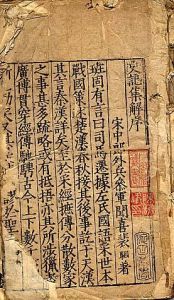 史記集解序
宋中郎外兵參軍聞喜裴駰著
班固有言曰司馬遷據左氏國語采世本
戰國策述楚漢春秋接其後事訖于天漢
其言秦漢詳矣至於采經摭傳分散數家
之事甚多疏略或有抵捂亦其所涉獵者
廣博貫穿經傳馳騁古今上下數千
斯 勤矣又其是 聖